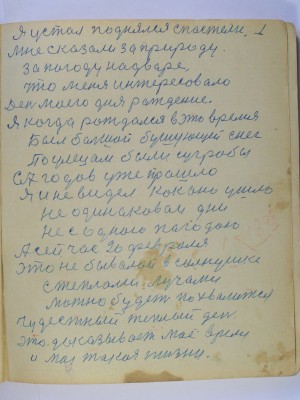 Я устал поднялся с постели. 1
Мне сказали за природу.
За погоду на дваре,
что меня интересовало
Ден моего дня рождение.
Я когда рождался в это время
Был болшой бушующей снег
По улецам были сугробы
годов уже прошло
Я и не видел как оно ушло
не одинаковаи дни
не с одного пагодою
А сейчас 20 февраля
Это не бывалой в солнушке
с тепломи лучами
можно будет похвалится
чудестный теплый ден
это даказывает маё время
и мая такая жизни.